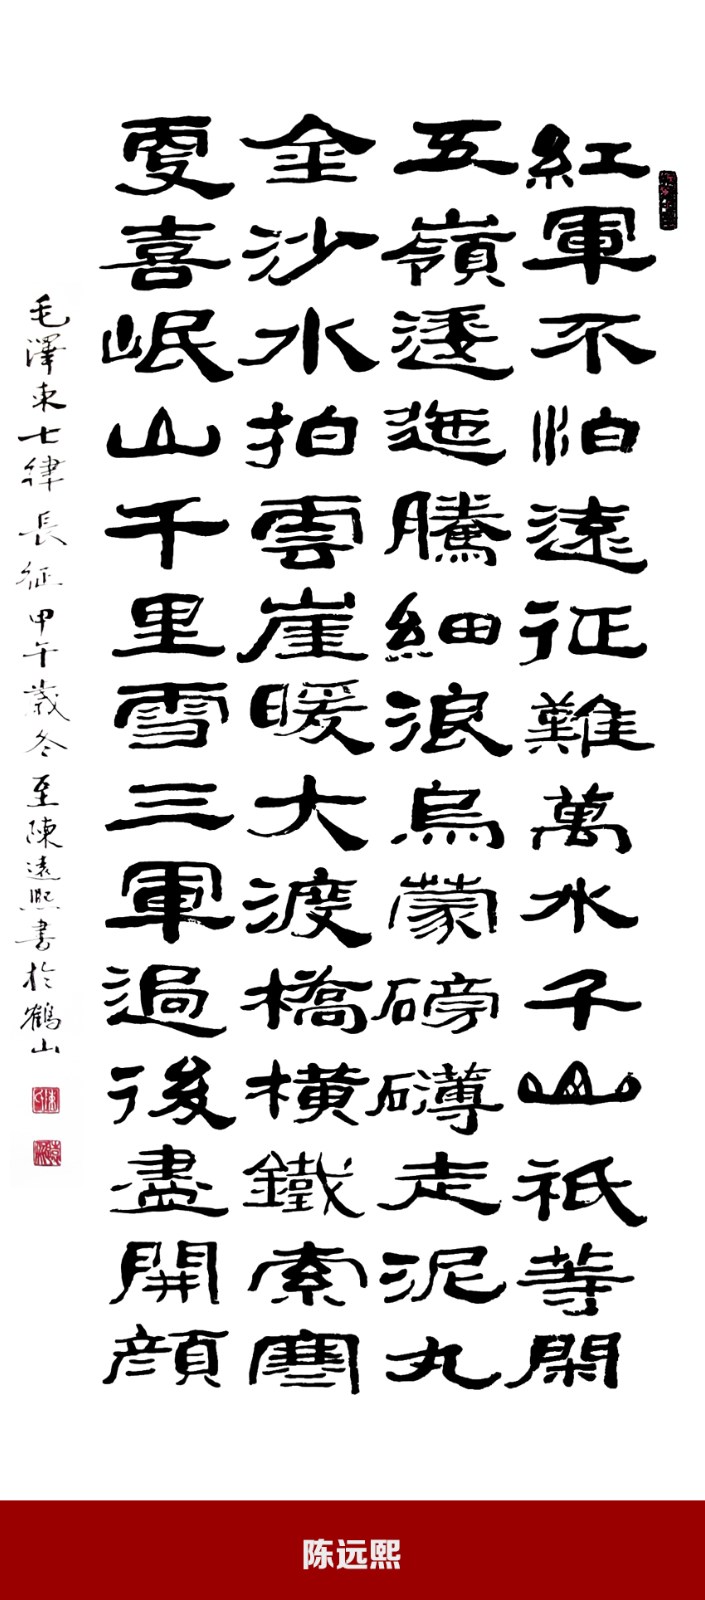 紅軍不怕遠征難萬水千山祇等閑
五嶺逶迤騰細浪烏蒙磅礴走泥丸
金沙水拍雲崖暖大渡橋橫鐵索寒
更喜岷山千里雪三軍過後盡開顔
毛澤東七律長征甲午歲冬至陳遠熙書於鶴山
陈远熙